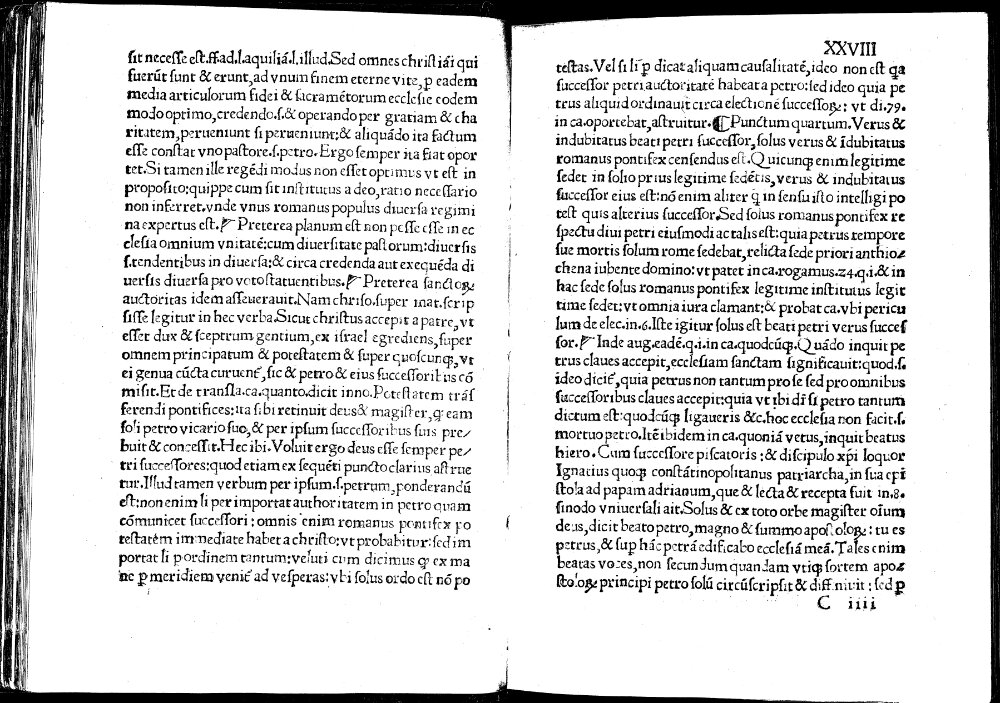 sit necesse est.ff.ad.l.aquiliā.l.illud.Sed omnes christiāi qui
fuerūt sunt & erunt,ad vnum finem eterne vite,ꝑ eadem
media articulorum fidei & sacramētorum ecclesie eodem
modo optimo,credendo.s.& operando per gratiam & cha
ritatem,perueniunt si perueniunt:& aliquādo ita factum
esse constat vno pastore.s.petro.Ergo semper ita fiat opor
tet.Si tamen ille regēdi modus non esset optimus vt est in
proposito:quippe cum sit institutus a deo,ratio necessario
non inferret.vnde vnus romanus populus diuersa regimi
na expertus est.Preterea planum est non posse esse in ec
clesia omnium vnitatē:cum diuersitate pastorum:diuersis
s.tendentibus in diuersa:& circa credenda aut exequēda di
uersis diuersa pro voto statuentibus.Preterea sanctoꝝ
auctoritas idem asseuerauit.Nam chriso.super mat.scrip
sisse legitur in hec verba.Sicut christus accepit a patre,vt
esset dux & sceptrum gentium,ex israel egrediens,super
omnem principatum & potestatem & super quoscunqꝫ,vt
ei genua cūcta curuent᷑,sic & petro & eius successoribus cō
misit.Et de transla.ca.quanto.dicit inno.Potestatem trās
ferendi pontifices:ita sibi retinuit deus & magister,ꝙ eam
soli petro vicario suo,& per ipsum successoribus suis pre⸗
buit & concessit.Hec ibi.Voluit ergo deus esse semper pe⸗
tri successores:quod etiam ex sequēti puncto clarius astrue
tur.Illud tamen verbum per ipsum.s.petrum,ponderandū
est:non enim li per importat authoritatem in petro quam
cōmunicet successori:omnis enim romanus pontifex po
testatēm immediate habet a christo:vt probabitur:sed im
portat li ꝑ ordinem tantum:veluti cum dicimus ꝙ ex ma
ne ꝑ meridiem venit᷑ ad vesperas:vbi solus ordo est nō po
XXVIII
testas.Vel si li ꝑ dicat aliquam causalitatē,ideo non est qa
successor petri auctoritatē habeat a petro:sed ideo quia pe
trus aliquid ordinauit circa electionē successoꝝ:vt di.79.
in ca.oportebat,astruitur.Punctum quartum.Verus &
indubitatus beati petri successor,solus verus & īdubitatus
romanus pontifex censendus est.Quicunqꝫ enim legitime
sedet in solio prius legitime sedētis,verus & indubitatus
successor eius est:nō enim aliter q̄ in sensu isto intelligi po
test quis alterius successor.Sed solus romanus pontifex re
spectu diui petri eiusmodi ac talis est:quia petrus tempore
sue mortis solum rome sedebat,relicta sede priori anthio⸗
chena iubente domino:vt patet in ca.rogamus.24.q.i.& in
hac sede solus romanus pontifex legitime institutus legit
time sedet:vt omnia iura clamant:& probat ca.vbi pericu
lum de elec.in.6.Iste igitur solus est beati petri verus succes
sor.Inde aug.eadē.q.i.in ca.quodcūqꝫ.Quādo inquit pe
trus claues accepit,ecclesiam sanctam significauit:quod.s.
ideo dicit᷑,quia petrus non tantum pro se sed pro omnibus
successoribus claues accepit:quia vt ibi dī si petro tantum
dictum est:quodcūqꝫ ligaueris &c.hoc ecclesia non facit.s.
mortuo petro.Itē ibidem in ca.quoniā vetus,inquit beatus
hiero.Cum successore piscatoris:& discipulo xp̄i loquor
Ignatius quoqꝫ constātinopolitanus patriarcha,in sua epī
stola ad papam adrianum,que & lecta & recepta fuit in.8.
sinodo vniuersali ait.Solus & ex toto orbe magister oīum
deus,dicit beato petro,magno & summo apostoloꝝ:tu es
petrus,& sup hāc petrā edificabo ecclesiā meā.Tales enim
beatas voces,non secundum quandam vtiqꝫ sortem apo⸗
stoloꝝ principi petro solū circūscripsit & diffiniuit:sed ꝑ
C iiii